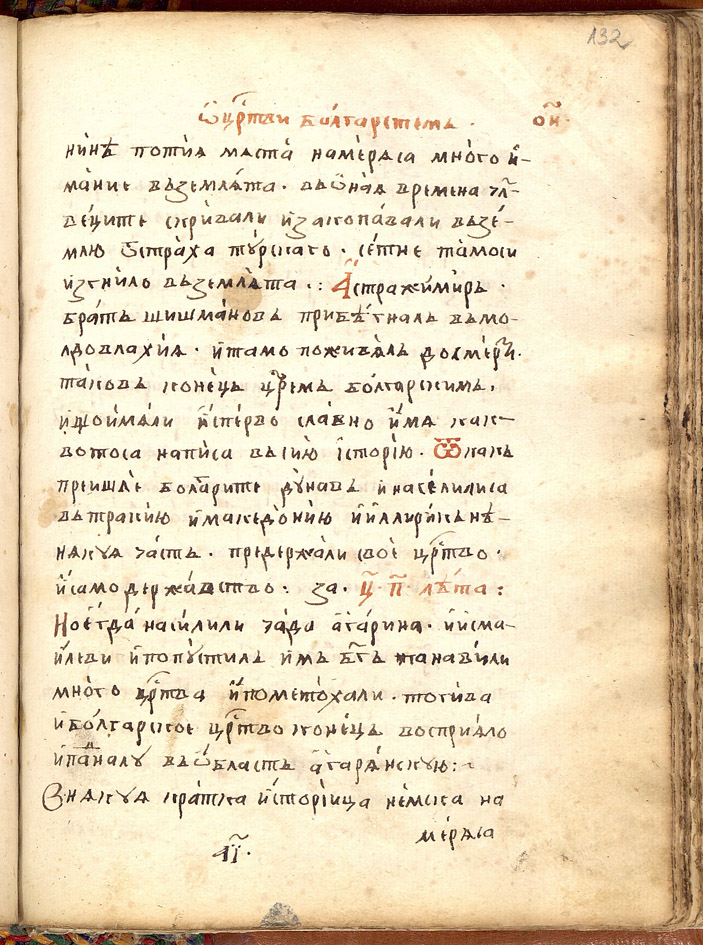 132
ѡ҆ црⷭ҇тви бо́лгарстемъ · ои҃·
нинѣ по тиѧ мѧста̀ намерѧса мно́го и҆–
мание въ землѧ́та · въ ѡ҆наѧ времена чл҃–
вѣците скрива́ли и҆ закопа́вали въ зе́–
млю ѿ стра́ха ту́рскаго · се́тне тамоси
изгни́ло въ землѧ́та ·: А҆стражими́ръ ·
бра́тъ шишма́новъ прибѣ́гналъ въ мо–
лдовлахи́ѧ · и҆ тамо поживѧ́лъ до сме́рт ·
та́ковъ коне́цъ цре́мъ бо́лгарскимъ,
и҆ що и҆мѧли и҆спе́рво сла́вно и҆́мѧ как–
вото са написа въ сию̀ і҆сто́рїю · Ѿ какъ
преишлѐ болга́рите ду́навъ и҆ насе́лилиса
въ траки́ю и҆ македо́нию и҆ и҆ллири́къ нѣ–
нѧкуѧ ча́сть · предержа́ли своѐ црⷭ҇тво ·
и҆ самодержа́вство : за · ц҃ · п҃ · лѣ́та :
Но е҆гда̀ наси́лили чада а҆га́рина · и҆ и҆сма–
и҆леви и҆ попу́стилъ и҆мъ бг҃ъ танави́ли
мно́го црⷭ҇тва и҆ помето́хали · тоги́ва
и҆ бо́лгарское црⷭ҇тво коне́цъ восприѧ́ло
и҆ па́наллу въ ѡ҆́бласть а҆гарѧ́нскую :~
Ѿ нѧкуѧ кра́тка и҆сторі́ица не́мска на
мерѧса
аі҃·